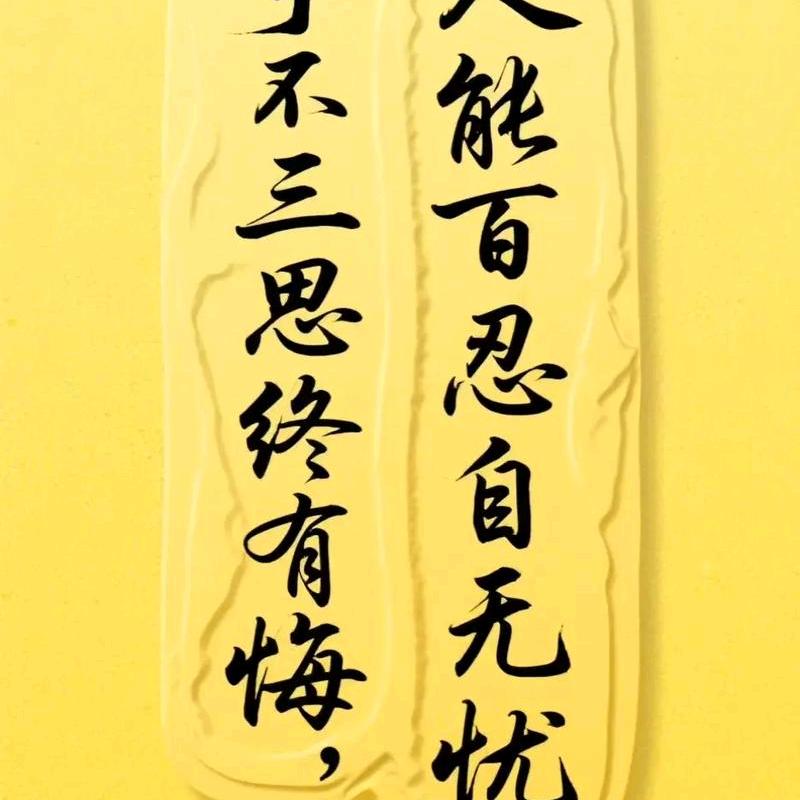 不三思终有悔，
能百忍自无忧